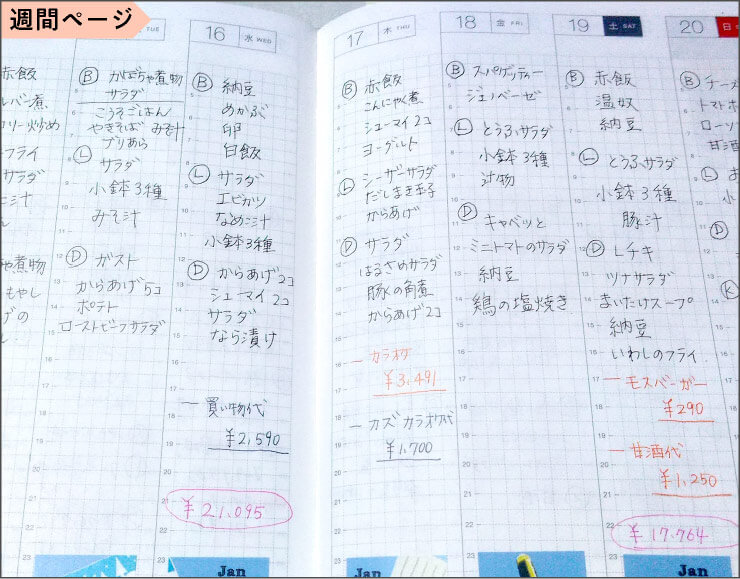 週間ページ
赤飯
レバー煮
リー炒め
フライ
サラダ
ニ汁
や煮物
もやし
げの
TUE
Ⓑ かぼちゃ煮物
サラダ
こうそごはん
やきそば みそ汁
ブリあら
Ⓛ サラダ
小鉢3種
みそ汁
Ⓓ ガスト
からあげ5コ
ポテト
ローストビーフサラダ
16 水 WED
Ⓑ 納豆
めかぶ
卵
白飯
Ⓛ サラダ
エビカツ
なめこ汁
小鉢3種
Ⓓ からあげ2コ
シューマイ2コ
サラダ
なら漬け
ー買い物代
¥2,590
¥21,095
Jan
17 木 THU
Ⓑ 赤飯
こんにゃく煮
シューマイ2コ
ヨーグルト
Ⓛ シーザーサラダ
だしまき玉子
からあげ
Ⓓ サラダ
はるさめサラダ
豚の角煮
からあげ2コ
ー カラオケ
¥3,491
ー カズカラオケ代
¥1,700
Jan
18 金 FRI
Ⓑ スパゲッティー
ジェノベーゼ
Ⓛ とうふサラダ
小鉢3種
汁物
Ⓓ キャベツと
ミニトマトのサラダ
納豆
鶏の塩焼き
19 土 SAT
Ⓑ 赤飯
温奴
納豆
Ⓛ とうふサラダ
小鉢3種
豚汁
Ⓓ Lチキ
ツナサラダ
まいたけスープ
納豆
いわしのフライ
ー モスバーガー
¥290
ー 甘酒代
¥1,250
¥17,764
Jan
20 日
Ⓑ チーズ
トマトホ
ローソ
甘酒
Ⓛ お
小
Ⓓ
Ⓚ